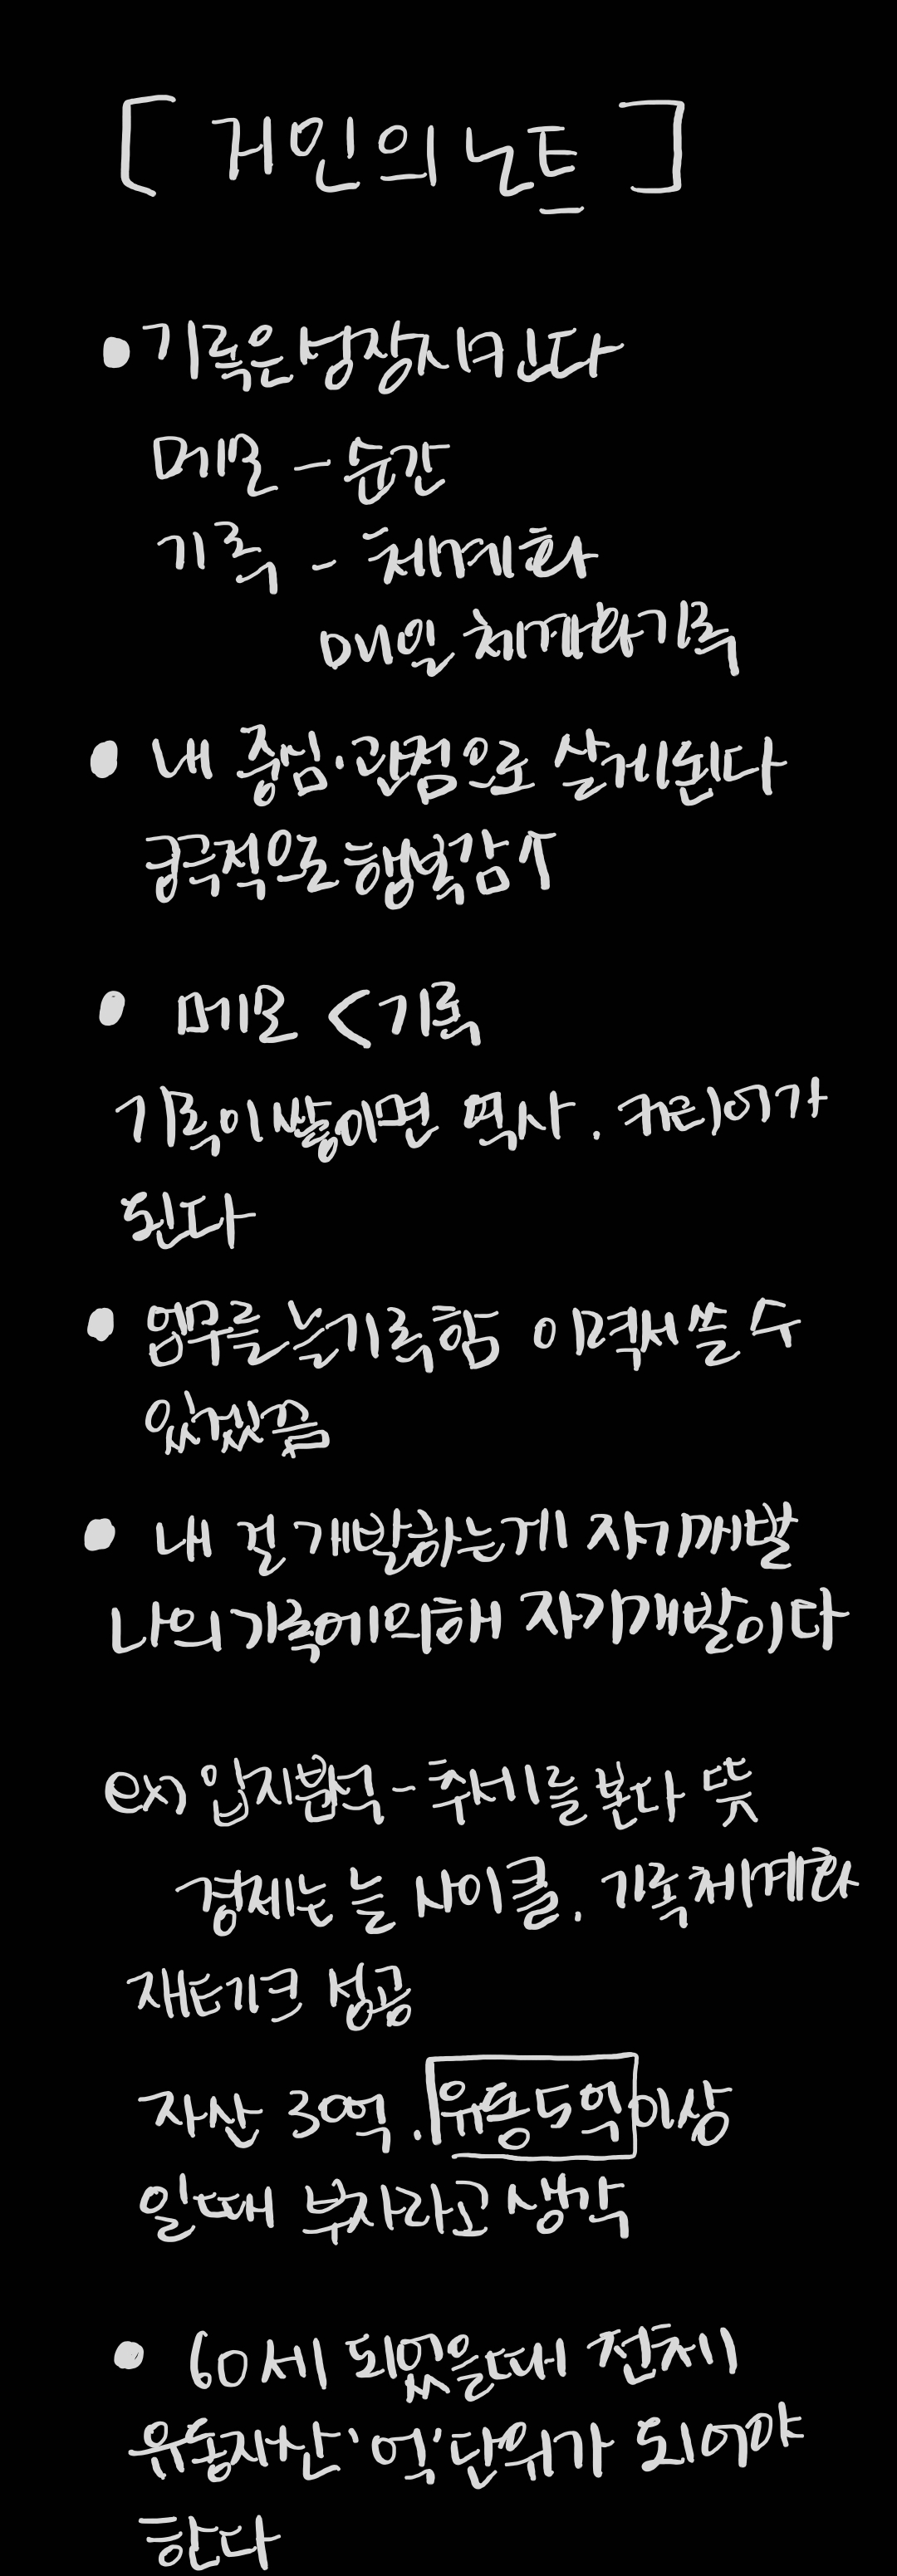 [ 거인의 노트 ]
• 기록은 성장시킨다
메모 - 순간
기록 - 체계화
매일 체계화기록
• 내 중심·관점으로 살게된다
궁극적으로 행복감↑
• 메모 < 기록
기록이 쌓이면 역사. 커리어가
된다
• 업무를 늘 기록함 이력서 쓸 수
있겠끔
• 내 걸 개발하는게 자기개발
나의 기록에 의해 자기개발이다
ex) 입지분석 - 추세를 본다 뜻
경제는 늘 사이클. 기록체계화
재테크 성공
자산 30억. 유동5억이상
일때 부자라고 생각
• 60세 되었을때 전체
유동자산 '억'단위가 되어야
한다